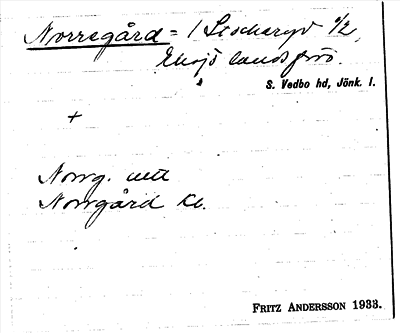 Norregård = 1 Stocharyd 1/2,
Eksjö landsförs.
S. Vedbo hd, Jönk. l.
+
Norrg. utt
Norrgård Kb.
FRITZ ANDERSSON 1933.